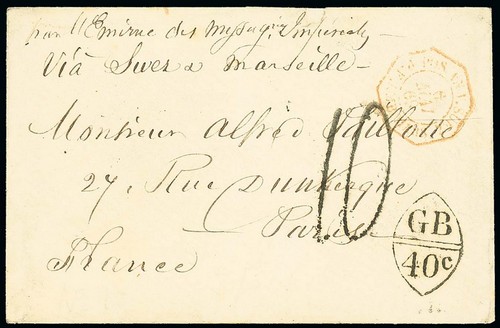 par l'Emirne des Messag.ies Imperiales
Viâ Suez & Marseille
Monsieur Alfred
27, Rue Dunkerque
Paris
France
10
GB
40c